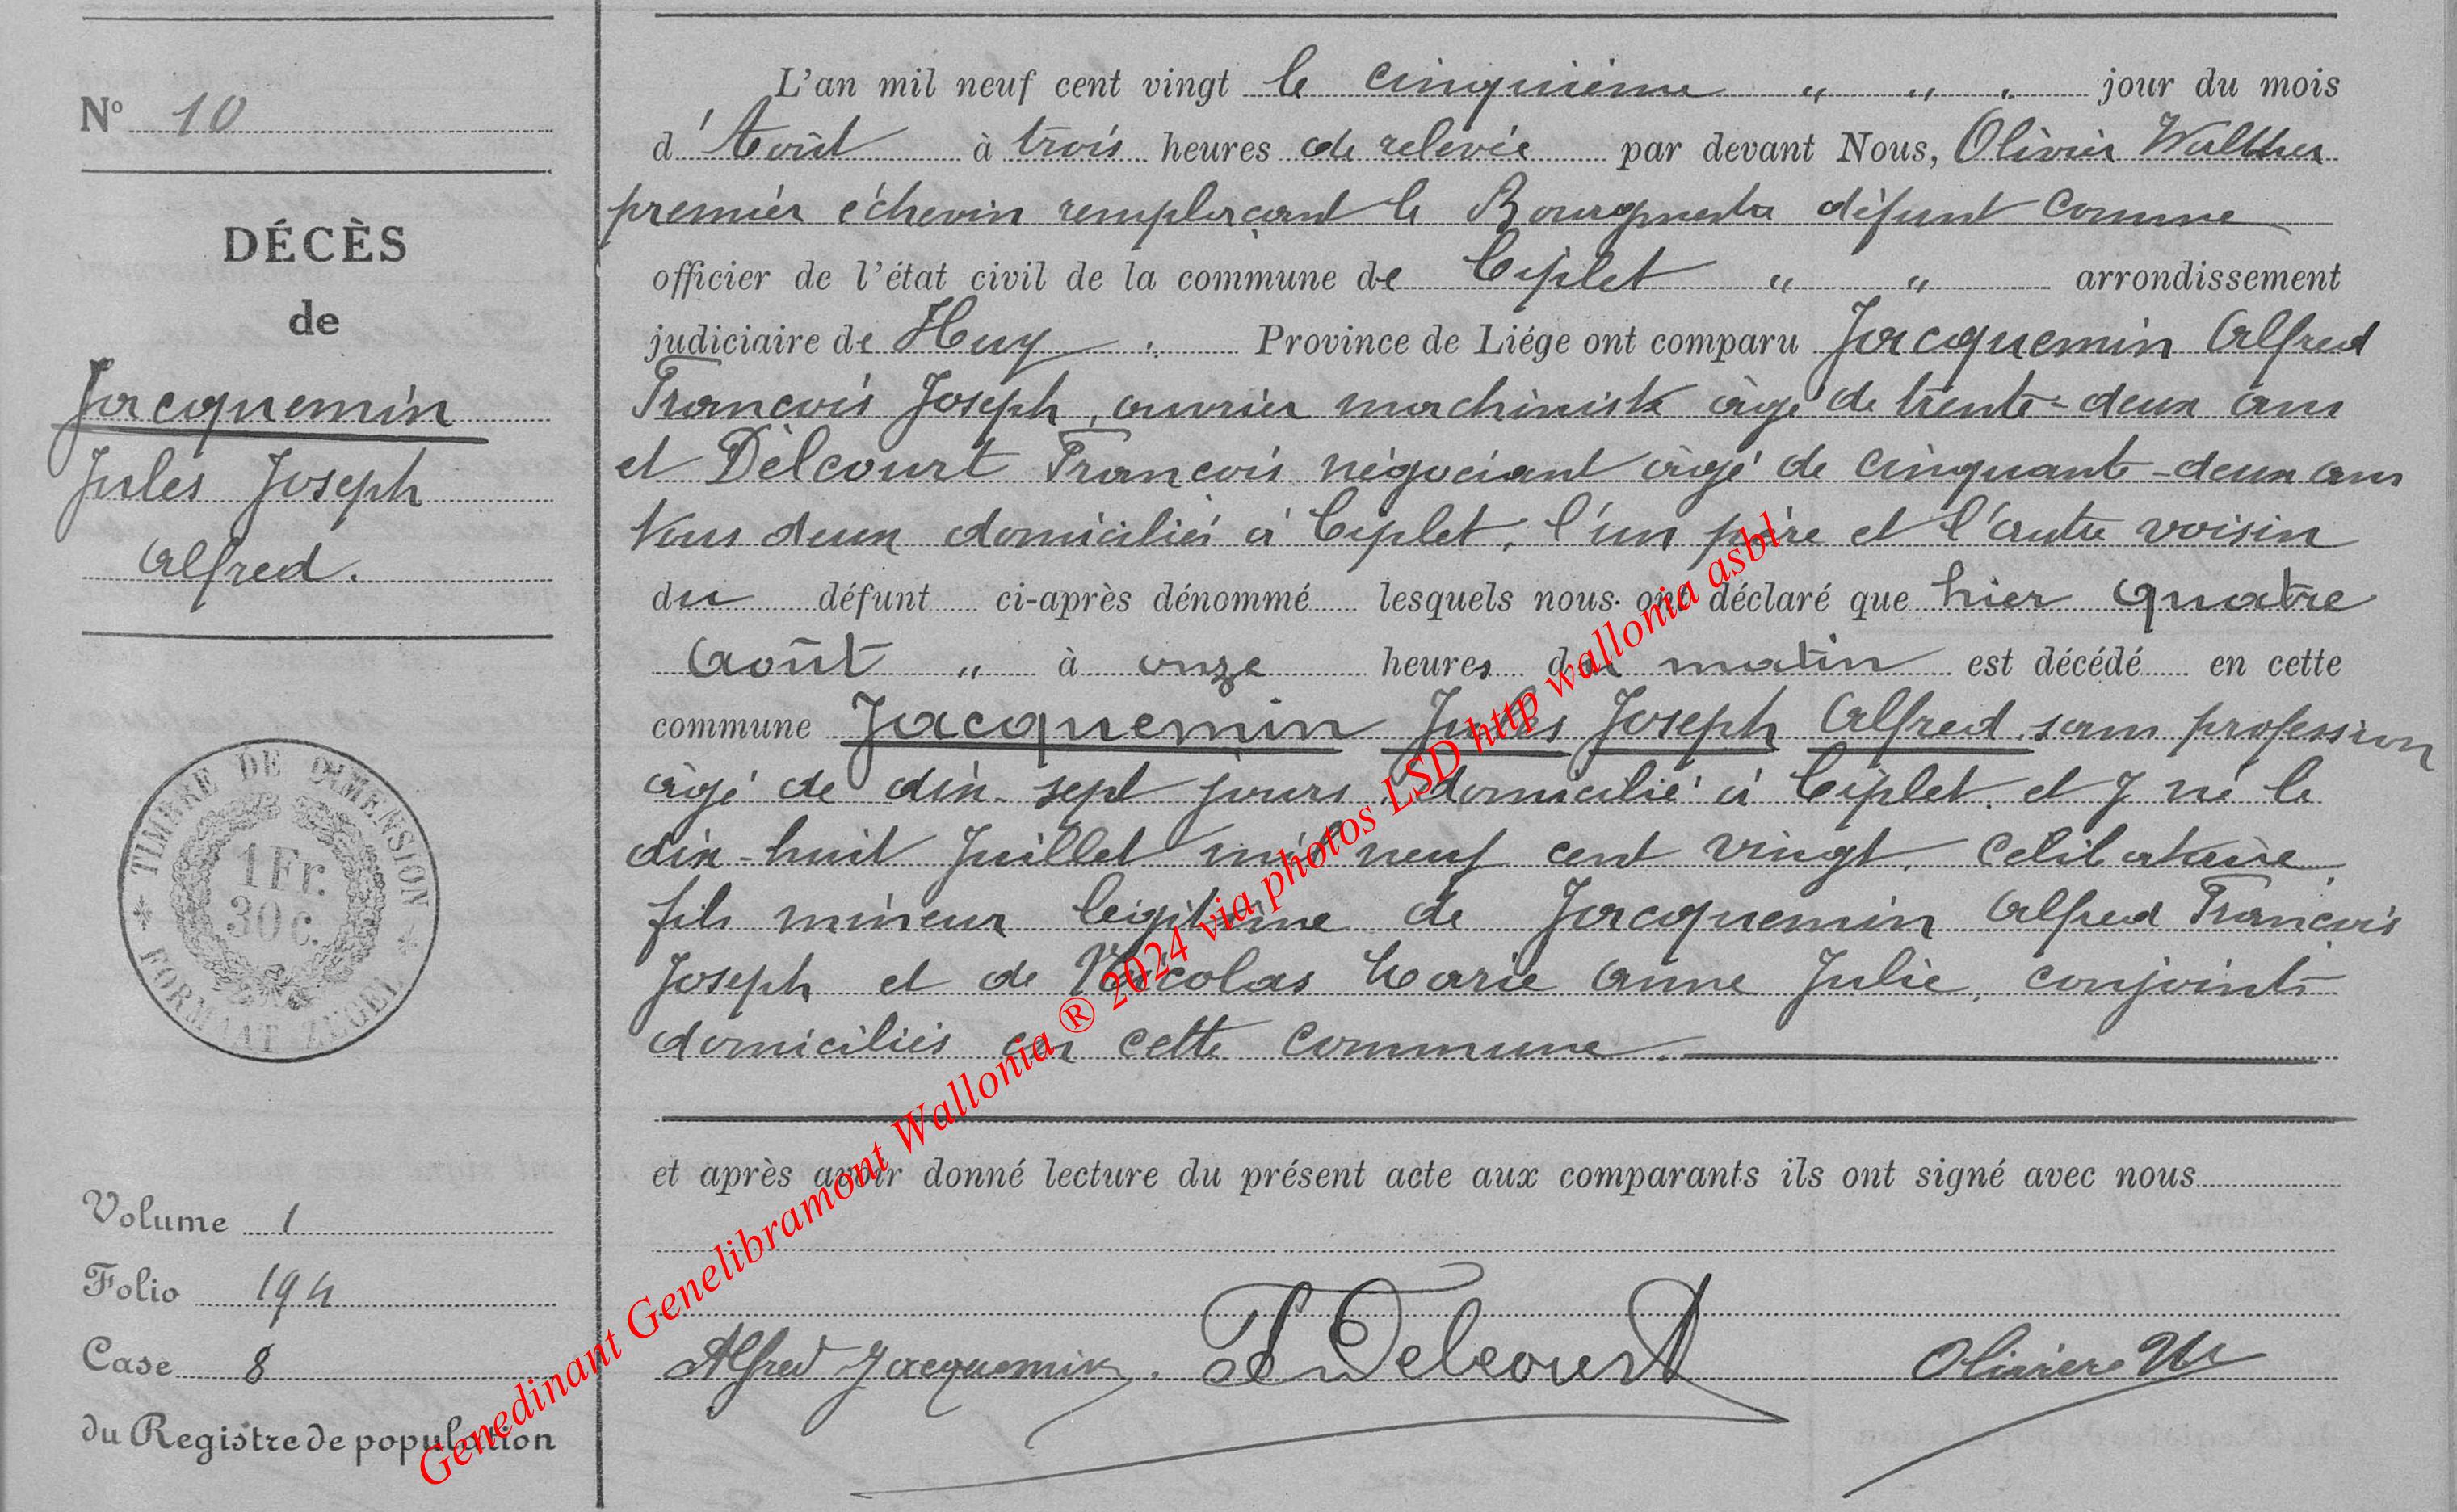 N° 10
DÉCÈS
de
Jacquemin
Jules Joseph
Alfred.
TIMBRE DE DIMENSION
1 Fr.
30 c.
FORMAAT ZEGEL
Volume 1
Folio 194
Case 8
du Registre de population
L'an mil neuf cent vingt le cinquième " " " jour du mois
d'Août à trois heures de relevée par devant Nous, Olivier Walther
premier échevin remplaçant le Bourgmestre défunt comme
officier de l'état civil de la commune de Ciplet " " arrondissement
judiciaire de Huy " Province de Liége ont comparu Jacquemin Alfred
François Joseph, ouvrier machiniste âgé de trente-deux ans
et Delcourt François négociant âgé de cinquante-deux ans
tous deux domiciliés à Ciplet, l'un père et l'autre voisin
du défunt ci-après dénommé lesquels nous ont déclaré que hier quatre
août " à onze heures du matin est décédé en cette
commune Jacquemin Jules Joseph Alfred sans profession
âgé de dix-sept jours, domicilié à Ciplet et y né le
dix-huit Juillet mil neuf cent vingt, célibataire,
fils mineur légitime de Jacquemin Alfred François
Joseph et de Nicolas Marie Anne Julie, conjoints
domiciliés en cette commune.
et après avoir donné lecture du présent acte aux comparants ils ont signé avec nous
Alfred Jacquemin. F Delcourt Oliviers W
Genedinant Genelibramont Wallonia ® 2024 via photos LSD http wallonia asbl